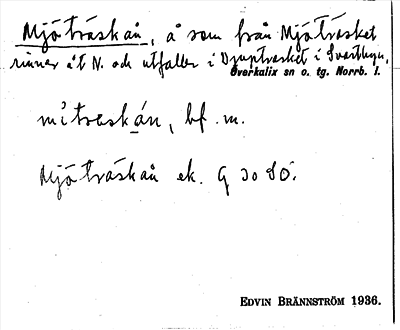 Mjöträskån, å som från Mjöträsket
rinner åt N. och utfaller i Djupträsket i Svartbyn,
Överkalix sn o. tg. Norrb. l.
mi̇̀traskán, bf. m.
Mjöträskån ek. G 30 SÖ.
EDVIN BRÄNNSTRÖM 1936.